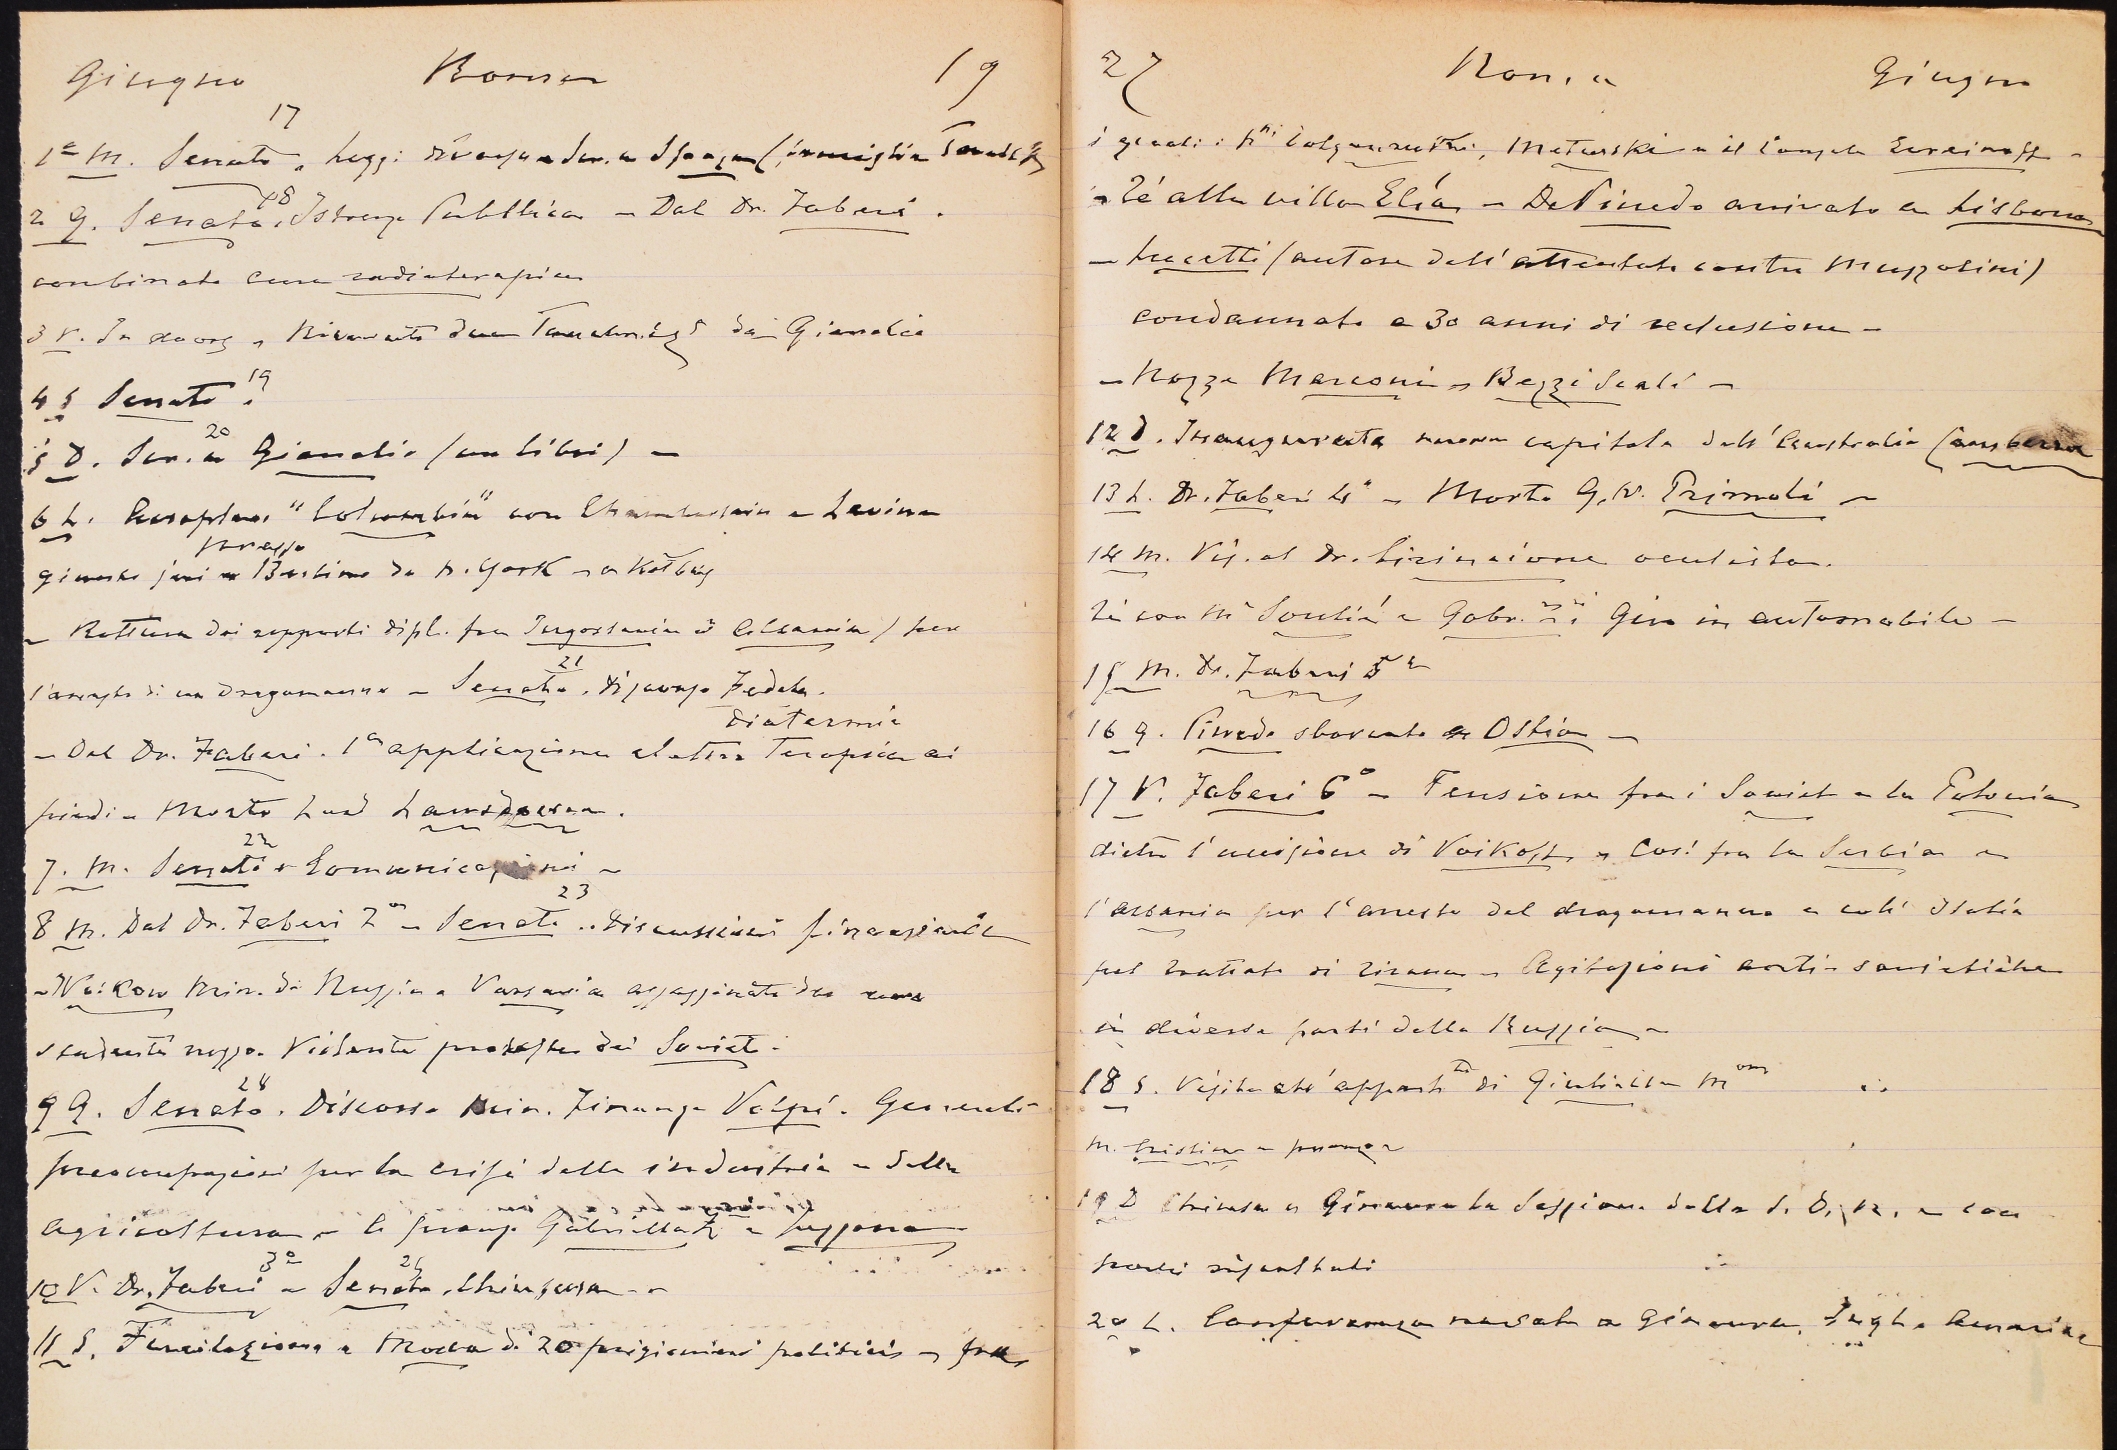 Giugno Roma 19
17
1° M. Senato. Leggi diverse
18
2 G. Senato. Istruz. Pubblica – Dal Dr. Faberi.
combinata cura radioterapica
3 V.
19
4 S Senato.
20
5 D. Ser. a Gianelia (un libri) –
6 L. Aeroplano "Columbia" con Chamberlain e Levine
presso
giunse ieri a Berlino da N. York – a Kotbus
– Rottura dei rapporti dipl. fra Jugoslavia ed Albania / per
21
l'arresto di un dragomanno – Senato. Discorso Fedele.
Diatermia
– Dal Dr. Faberi. 1a applicazione elettro Terapica ai
piedi – Morto Lord Lansdowne.
22
7. M. Senato – Comunicazioni –
23
8 M. Dal Dr. Faberi 2a – Senato. Discussioni finanziarie
– Woikow Min. di Russia a Varsavia assassinato da uno
studente russo. Violenta protesta dei Soviet.
24
9 G. Senato. Discorso Min. Finanze Volpi. Generali
preoccupazioni per la crisi della industria e della
agricoltura – a pranzo
3a 25
10 V. Dr. Faberi – Senato, chiusura –
11 S. Fucilazione a Mosca di 20 prigionieri politici – fra
27 Roma Giugno
i quali: Pri Dolgourouki, e il Console
– Té alla villa Elia – De Pinedo arrivato a Lisbona
– Lucetti (autore dell'attentato contro Mussolini)
condannato a 30 anni di reclusione –
– Nozze Marconi – Bezzi Scali –
12 D. Inaugurata nuova capitale dell'Australia (Camberra
13 L. Dr. Faberi 4a – Morto G. N. Primoli –
14 M. Vis. al Dr. Cirincione oculista.
Té con Giro in automobile –
15 M. Dr. Faberi 5a
16 G. Pinedo sbarcato a Ostia –
17 V. Faberi 6a – Tensione fra i Soviet e la Polonia
dietro l'uccisione di Voikoff – Così fra la Serbia e
l'Albania per l'arresto del dragomanno e coll'Italia
pel trattato di Tirana – Agitazioni anti-sovietiche
in diverse parti della Russia –
18 S. Visita all'appartto di Giulietta
M. Cristina a pranzo
19 D Chiusa a Ginevra la Sessione della S. D. N. – con
pochi risultati
20 L. Conferenza navale a Ginevra, Ingh.